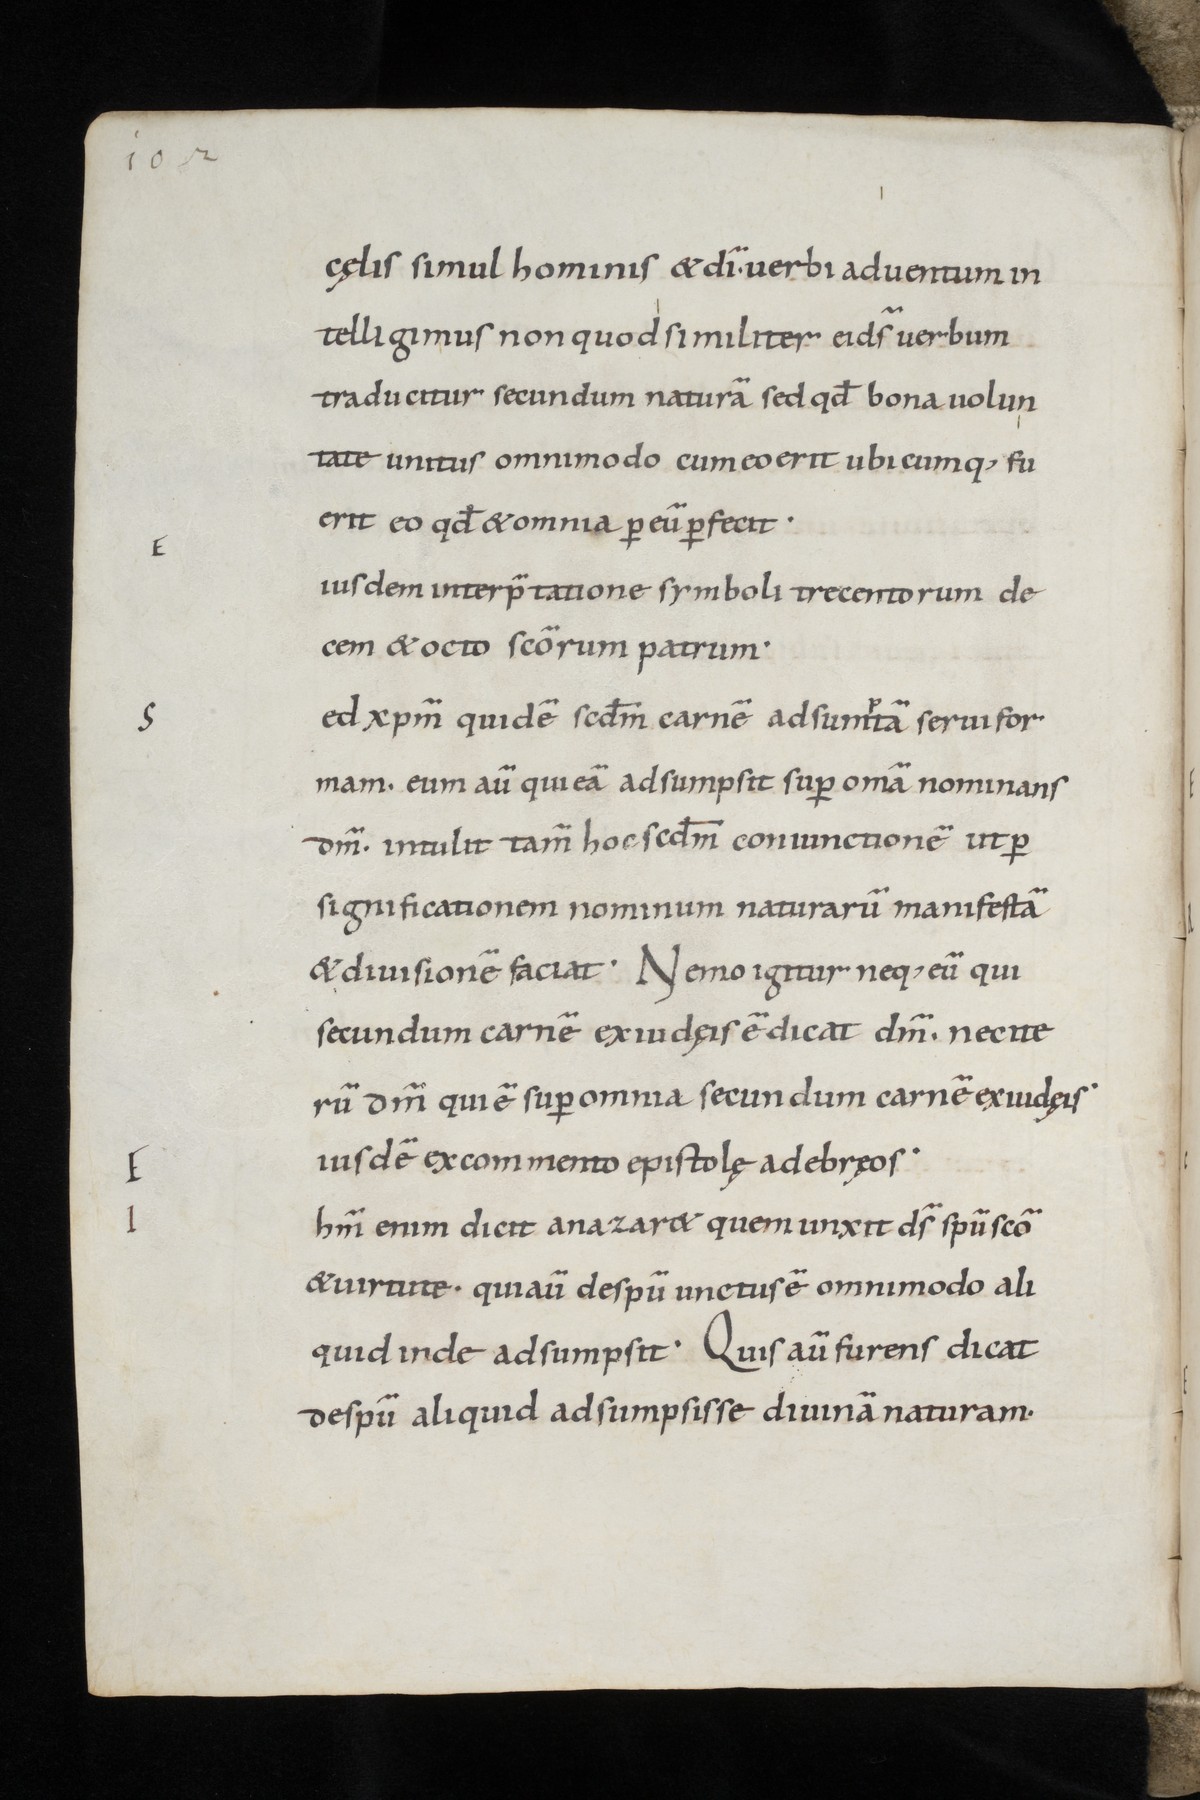 102
cęlis simul hominis & dī· uerbi aduentum in
telligimus non quod similiter eids̄ uerbum
traducitur secundum naturā sed qđ bona uolun
tate unitus omnimodo cum eo erit ubicumq, fu
erit eo qđ & omnia ꝑ eū ꝑfecit·
E iusdem interp̄tatione symboli trecentorum de
cem & octo scōrum patrum·
S ed xpm̄ quidē scđm carnē adsumptā serui for
mam· eum aū qui eā adsumpsit suꝑ omā nominans
dm̄· intulit tam̄ hoc scđm coniunctionē ut ꝑ
significationem nominum naturarū manifestā
& diuisionē faciat· Nemo igitur neq, eū qui
secundum carnē ex iudęis ē dicat dm̄· nec ite
rū dm̄ qui ē suꝑ omnia secundum carnē ex iudęis·
E iusdē ex commento epistolę ad ebręos·
I hm̄ enim dicit a nazar& quem unxit ds̄ spū scō
& uirtute· qui aū de spū unctus ē omnimodo ali
quid inde adsumpsit· Quis aū furens dicat
de spū aliquid adsumpsisse diuinā naturam·